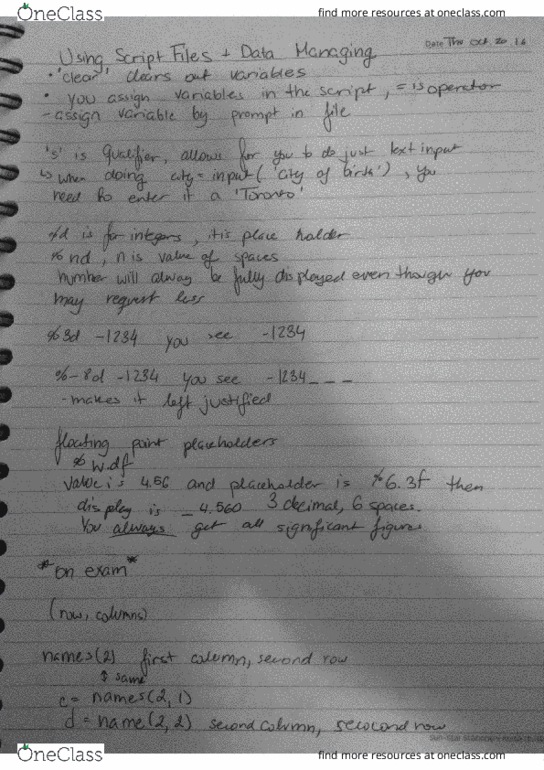 OneClass
find more resources at oneclass.com
Date Thu Oct. 20. 16
Using Script Files + Data Managing
• 'clear' clears out variables
• you assign variables in the script, = is operator
- assign variable by prompt in file
's' is qualifier, allows for you to do just text input
↳ when doing city = input('city of birth'), you
need to enter it a 'Toronto'
%d is for integers, it is place holder
% nd, n is value of spaces
number will alway be fully displayed even though you
may request less
% 3d -1234 you see -1234
%-8d -1234 you see -1234_ _ _
- makes it left justified
floating point placeholders
% w.df
value is 4.56 and placeholder is %6.3f then
display is _4.560 3 decimal, 6 spaces.
You always get all significant figures
*on exam*
(row, columns)
names(2) first column, second row
↕ same
c = names(2,1)
d = name(2,2) second column, secocond row
OneClass
find more resources at oneclass.com